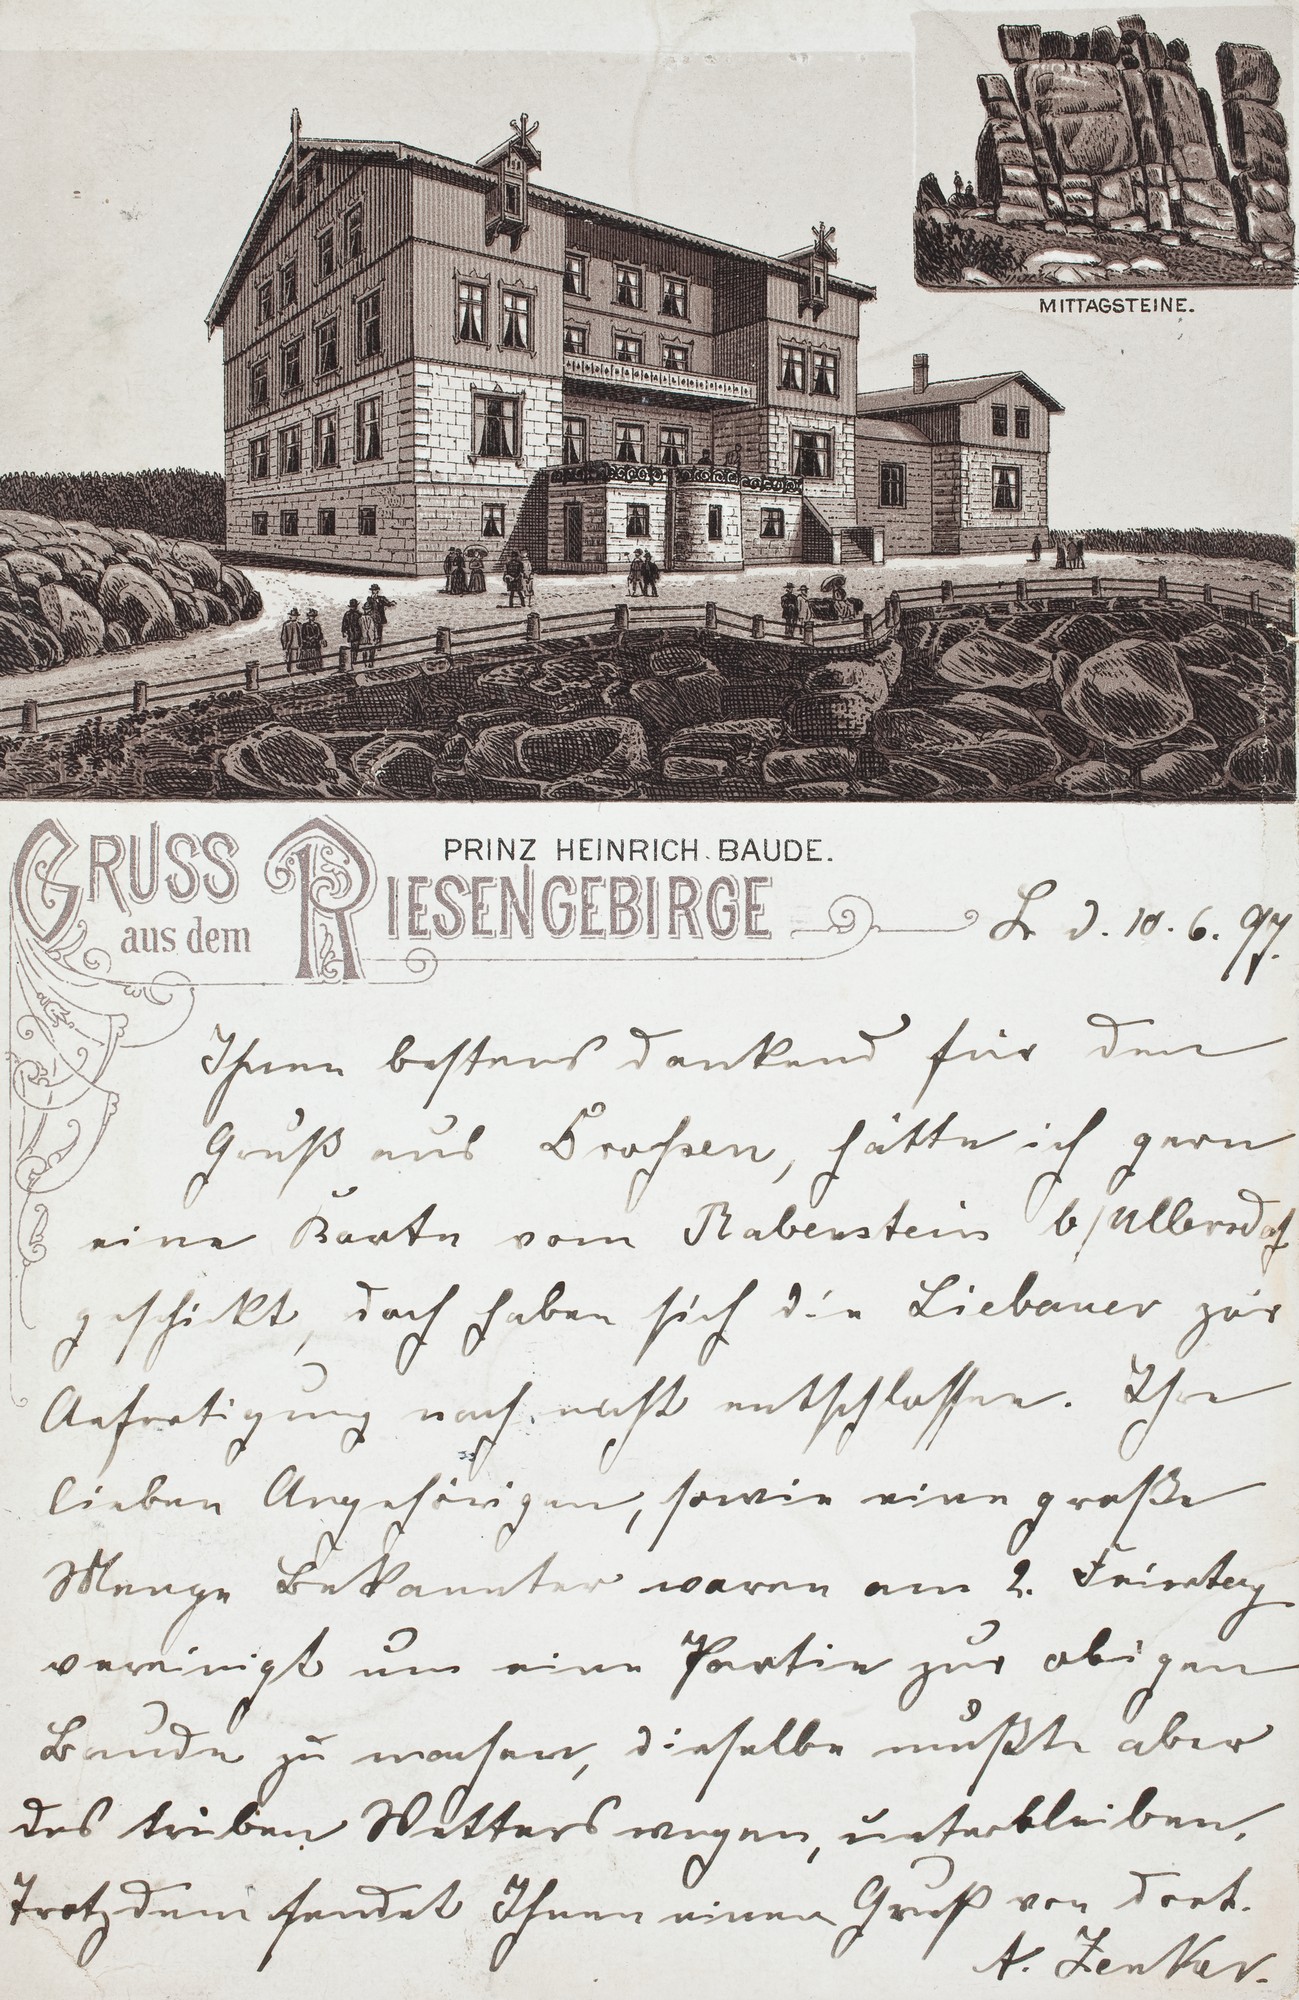 MITTAGSTEINE.
PRINZ HEINRICH BAUDE.
GRUSS aus dem RIESENGEBIRGE
L. d. 10. 6. 97.
Ihnen bestens dankend für den
Gruß aus Drossen, hätte ich gern
eine Karte vom Rabenstein b/Ullersdorf
geschickt, doch haben sich die Liebauer zur
Anfertigung noch nicht entschlossen. Ihre
lieben Angehörigen, sowie eine große
Menge Bekannter waren am 2. Feiertag
vereinigt um eine Partie zur obigen
Baude zu machen, dieselbe mußte aber
des trüben Wetters wegen, unterbleiben.
Trotzdem sendet Ihnen einen Gruß von dort.
A. Zenker.